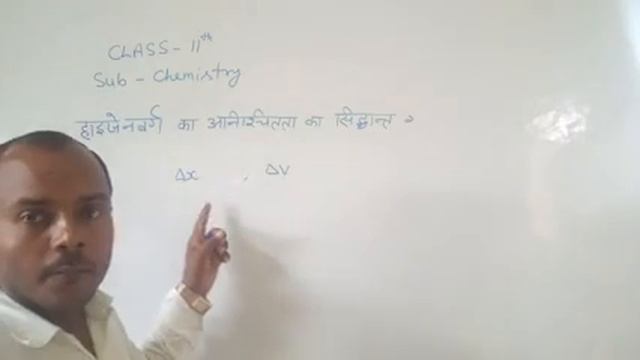 CLASS - 11th
Sub - Chemistry
हाइजेनबर्ग का अनिश्चितता का सिद्धान्त ?
Δx , ΔV